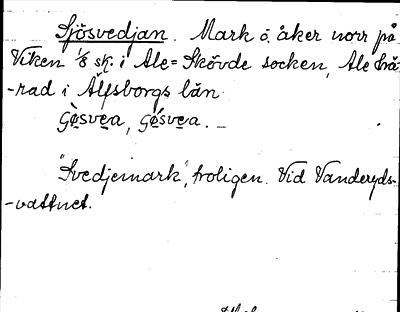 Sjösvedjan. Mark o. åker norr på
Viken 1/8 sk. i Ale=Skövde socken, Ale hä-
-rad i Älfsborgs län
"Svedjemark", troligen. Vid Vanderyds-
-vattnet.